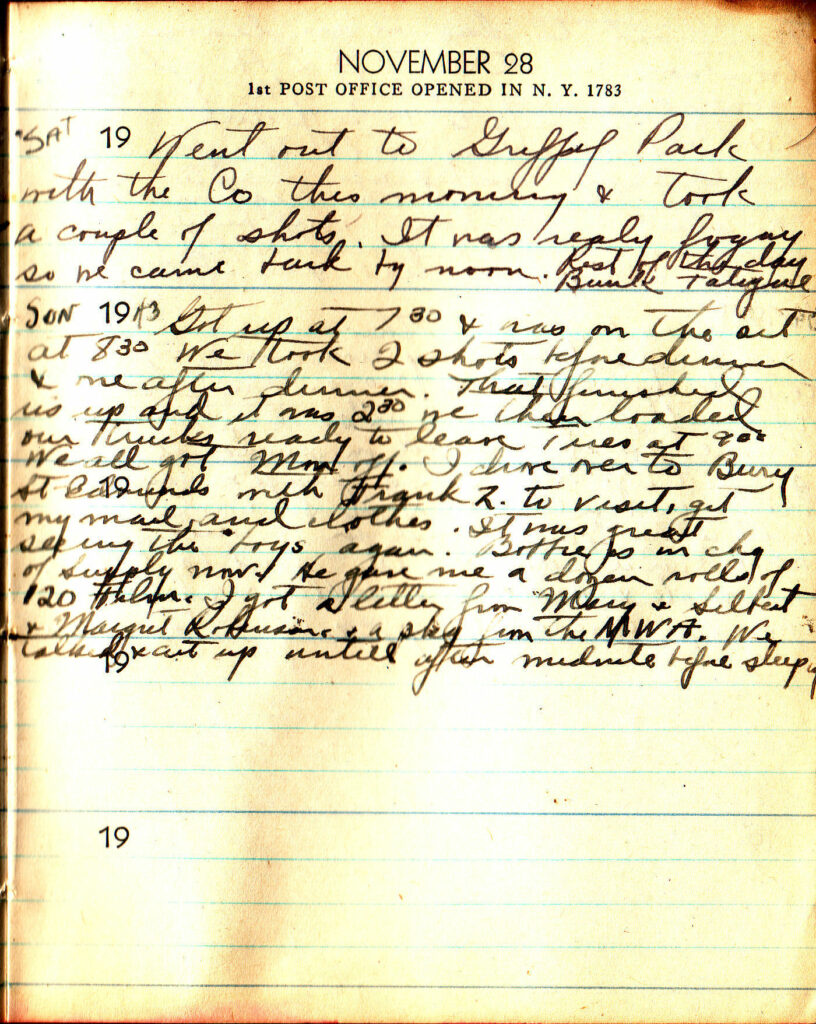 NOVEMBER 28
1st POST OFFICE OPENED IN N. Y. 1783
SAT 19 Went out to Park
with the Co this morning & took
a couple of shots. It was realy foggy
so we came back by noon. Rest of the day
Bunk Fatigue
SUN 1943 Got up at 7 30 & was on the set
at 8 30 We took 2 shots before dinner
& one after dinner. That finished
us up and it was 2 30 we then loaded
our trucks ready to leave Tues at 9 00
We all got Mon off. I drove over to Bury
St Edmunds with Frank Z. to visit, get
19
my mail and clothes. It was great
seeing the boys again. Bobbie is in chg
of supply now. He gave me a dozen rolls of
120 Film. I got a letter from Mary &
& Margret Robinson & a pkg from the M W H. We
talked & cut up untill after midnite before sleep
19
19
19